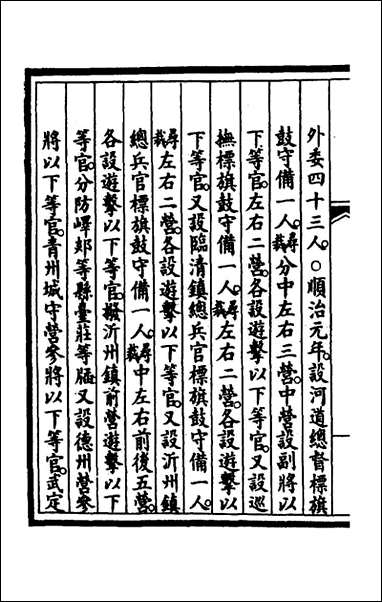 外委四十三人。○順治元年。設河道總督標旗
鼓守備一人。尋裁。分中左右三營。中營設副將以
下等官。左右二營。各設遊擊以下等官。又設巡
撫標旗鼓守備一人。尋裁。左右二營。各設遊擊以
下等官。又設臨清鎮總兵官標旗鼓守備一人。
尋裁。左右二營。各設遊擊以下等官。又設沂州鎮
總兵官標旗鼓守備一人。尋裁。中左右前後五營。
各設遊擊以下等官。撥沂州鎮前營遊擊以下
等官。分防嶧郯等縣臺莊等牐。又設德州營參
將以下等官。青州城守營參將以下等官。武定